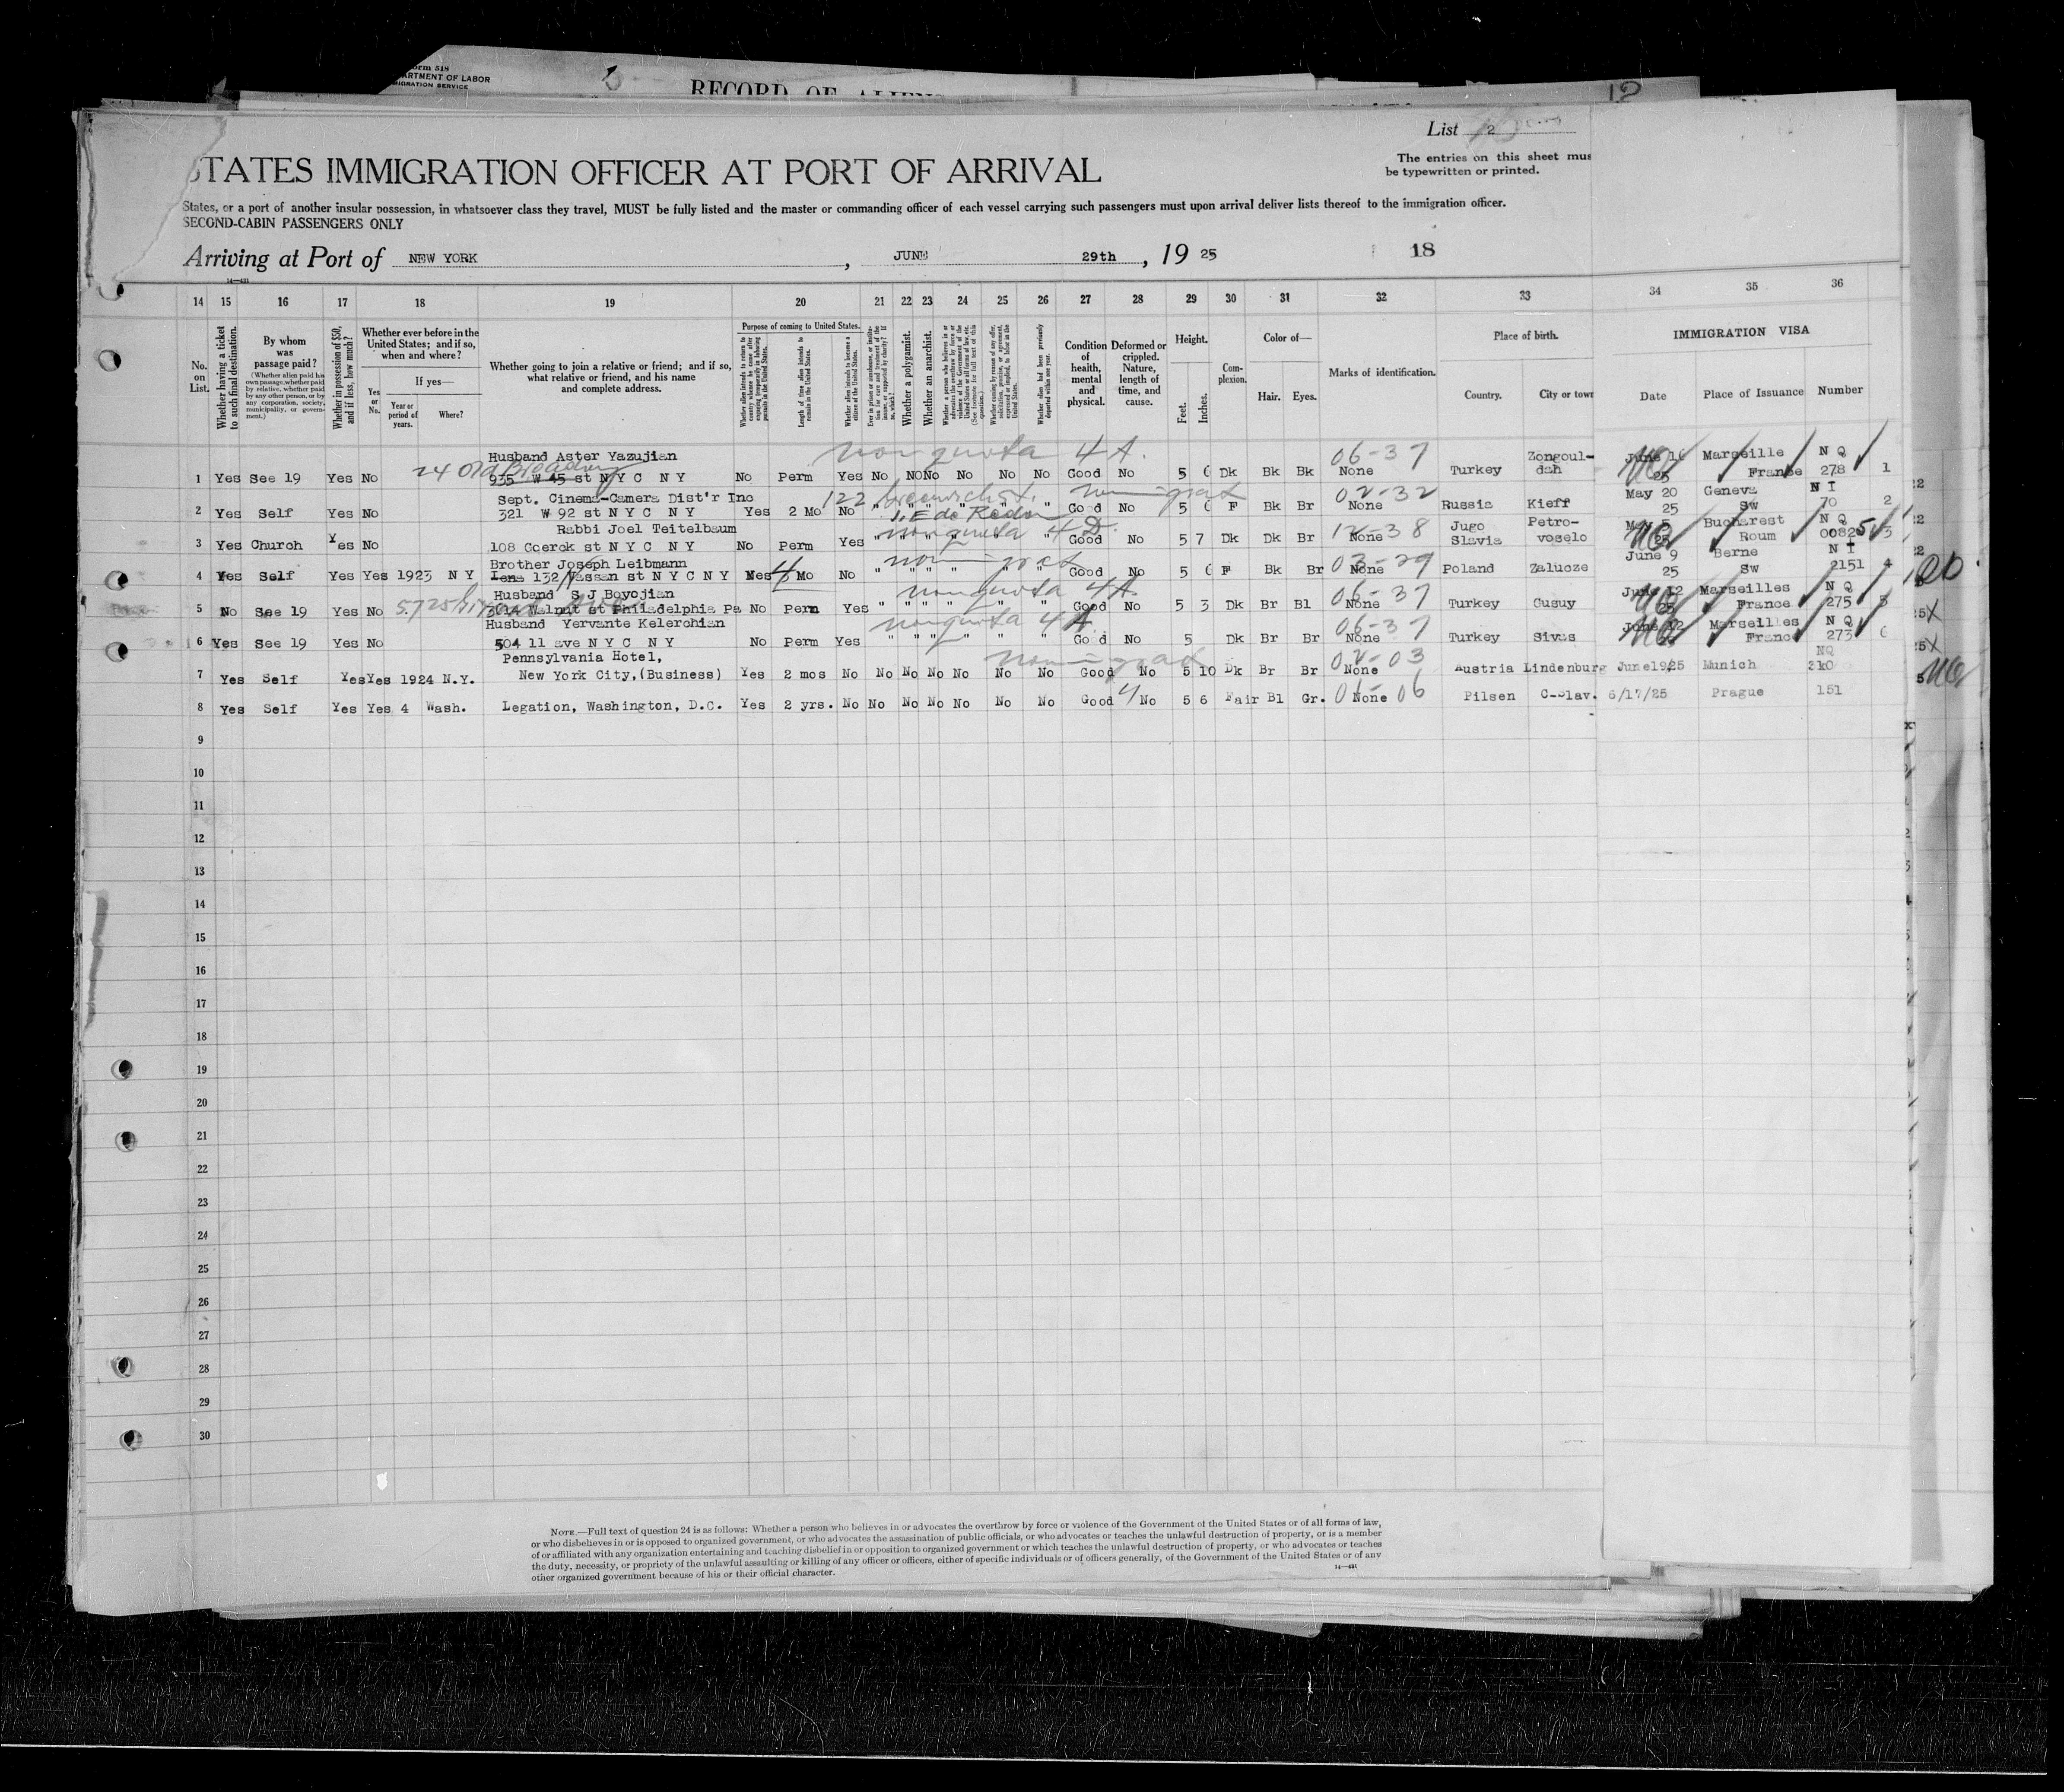 orm 518
ARTMENT OF LABOR
IGRATION SERVICE
RECORD OF ALIENS
12
List 2
The entries on this sheet mus
be typewritten or printed.
STATES IMMIGRATION OFFICER AT PORT OF ARRIVAL
States, or a port of another insular possession, in whatsoever class they travel, MUST be fully listed and the master or commanding officer of each vessel carrying such passengers must upon arrival deliver lists thereof to the immigration officer.
SECOND-CABIN PASSENGERS ONLY
Arriving at Port of NEW YORK, JUNE 29th, 19 25
18
14—421
14 15 16 17 18 19 20 21 22 23 24 25 26 27 28 29 30 31 32 33 34 35 36
No. on List.
Whether having a ticket to such final destination.
By whom was passage paid?
(Whether alien paid his own passage, whether paid by relative, whether paid by any other person, or by any corporation, society, municipality, or government.)
Whether in possession of $50, and if less, how much?
Whether ever before in the United States; and if so, when and where?
Yes or No.
If yes—
Year or period of years.
Where?
Whether going to join a relative or friend; and if so, what relative or friend, and his name and complete address.
Purpose of coming to United States.
Length of time alien intends to remain in the United States.
Whether alien intends to become a citizen of the United States.
Whether a polygamist.
Whether an anarchist.
Condition of health, mental and physical.
Deformed or crippled. Nature, length of time, and cause.
Height.
Feet.
Inches.
Complexion.
Color of—
Hair.
Eyes.
Marks of identification.
Place of birth.
Country.
City or town
IMMIGRATION VISA
Date
Place of Issuance
Number
Husband Aster Yazujian nonquota 4 A. 06-37 Zongoul- June 16 Marseille N Q
1 Yes See 19 Yes No 24 Old Broadway 935 W 45 st N Y C N Y No Perm Yes No NO No No No No Good No 5 Dk Bk Bk None Turkey dah 25 France 278 1
Sept. Cinema-Camera Dist'r Inc 122 Greenwich st. 02-32 May 20 Geneva N I
2 Yes Self Yes No 321 W 92 st N Y C N Y Yes 2 Mo No " " " " " " Good No 5 F Bk Br None Russia Kieff 25 Sw 70 2
Rabbi Joel Teitelbaum nonquota 4 D. 12-38 Jugo Petro- May 5 Bucharest N Q
3 Yes Church Yes No 108 Goerck st N Y C N Y No Perm Yes " " " " " " Good No 5 7 Dk Dk Br None Slavia voselo 25 Roum 00825 3
Brother Joseph Leibmann 03-29 June 9 Berne N I
4 Yes Self Yes Yes 1923 N Y 132 Nassan st N Y C N Y Yes 4 Mo No " " " " Good No 5 F Bk Br None Poland Zalucze 25 Sw 2151 4
Husband S J Boyojian nonquota 4 A 06-37 June 12 Marseilles N Q
5 No See 19 Yes No 5725 3014 Walnut st Philadelphia Pa No Perm Yes " " " " " " Good No 5 3 Dk Br Bl None Turkey Cusuy 25 France 275 5
Husband Yervante Kelerchian nonquota 4 A 06-37 June 12 Marseilles N Q
6 Yes See 19 Yes No 504 11 ave N Y C N Y No Perm Yes " " " " " " Good No 5 Dk Br Br None Turkey Sivas 25 Franc 273 6
Pennsylvania Hotel, 02-03 NQ
7 Yes Self Yes Yes 1924 N.Y. New York City,(Business) Yes 2 mos No No No No No No No Good No 5 10 Dk Br Br None Austria Lindenburg June1925 Munich 210
8 Yes Self Yes Yes 4 Wash. Legation, Washington, D.C. Yes 2 yrs. No No No No No No No Good 4 No 5 6 Fair Bl Gr. None 01-06 Pilsen C-slav. 6/17/25 Prague 151
9
10
11
12
13
14
15
16
17
18
19
20
21
22
23
24
25
26
27
28
29
30
NOTE.—Full text of question 24 is as follows: Whether a person who believes in or advocates the overthrow by force or violence of the Government of the United States or of all forms of law,
or who disbelieves in or is opposed to organized government, or who advocates the assassination of public officials, or who advocates or teaches the unlawful destruction of property, or is a member
of or affiliated with any organization entertaining and teaching disbelief in or opposition to organized government or which teaches the unlawful destruction of property, or who advocates or teaches
the duty, necessity, or propriety of the unlawful assaulting or killing of any officer or officers, either of specific individuals or of officers generally, of the Government of the United States or of any
other organized government because of his or their official character.
14—421